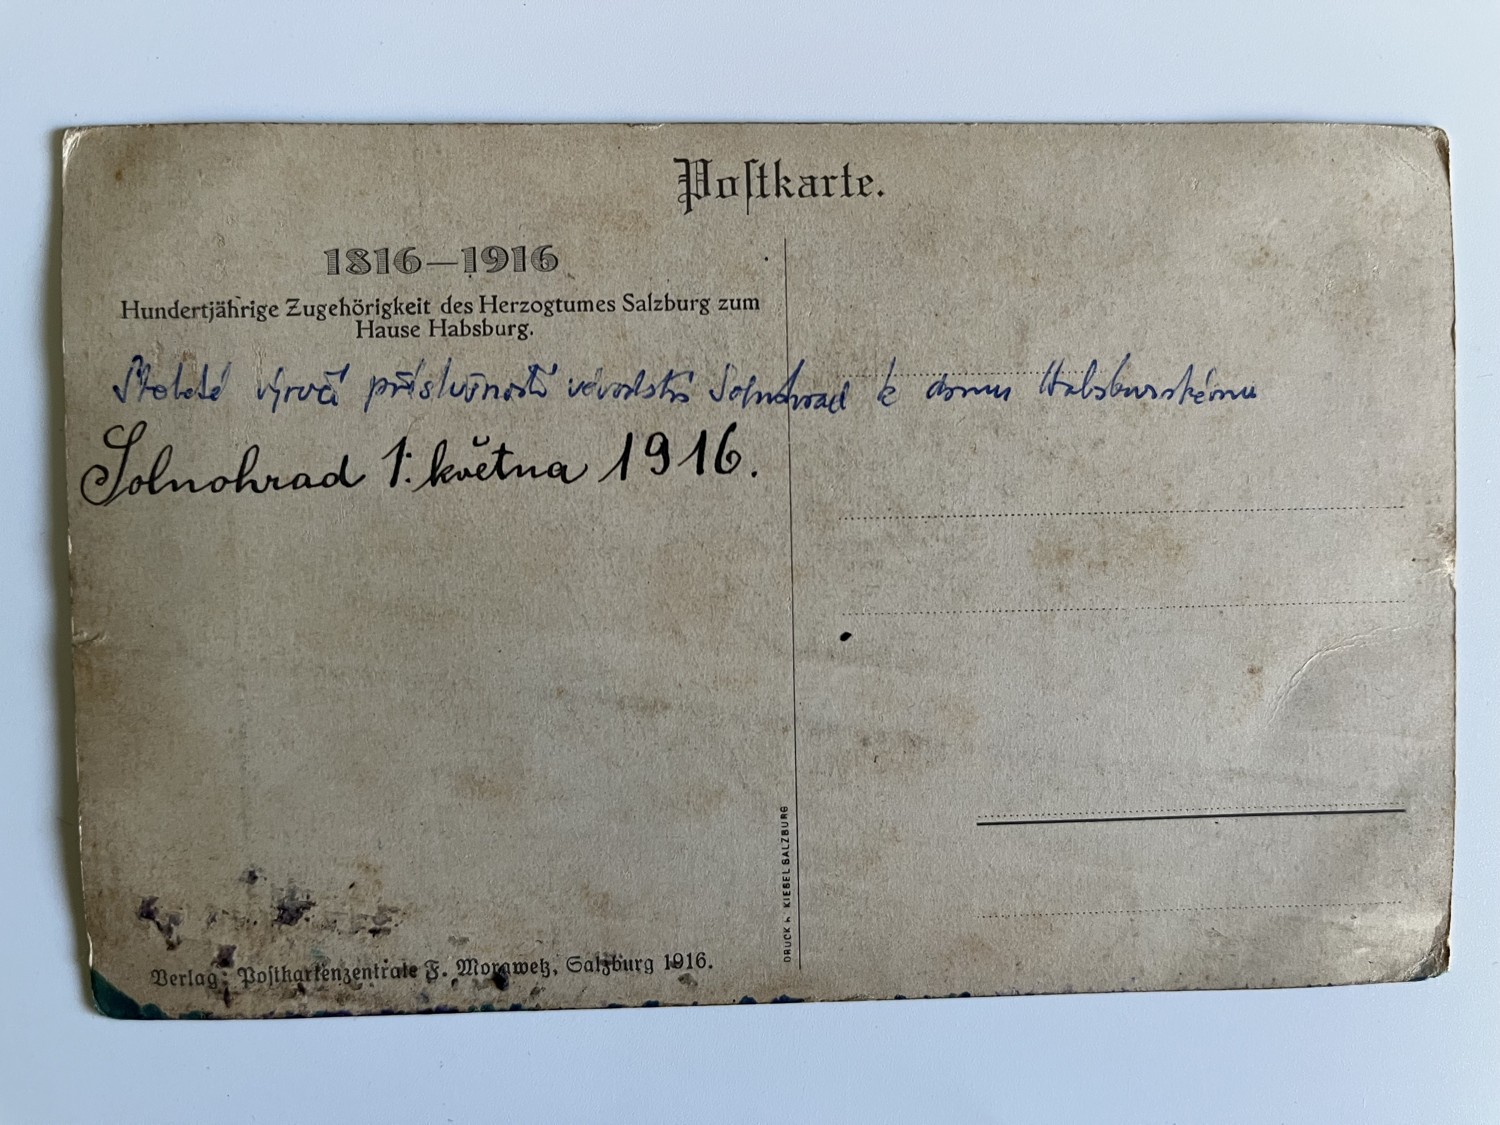 Postkarte.
1816—1916
Hundertjährige Zugehörigkeit des Herzogtumes Salzburg zum
Hause Habsburg.
Stoleté výročí příslušnosti vévodství Solnohrad k domu Habsburskému
Solnohrad 1. května 1916.
DRUCK v. KIESEL SALZBURG
Verlag: Postkartenzentrale F. Morawetz, Salzburg 1916.